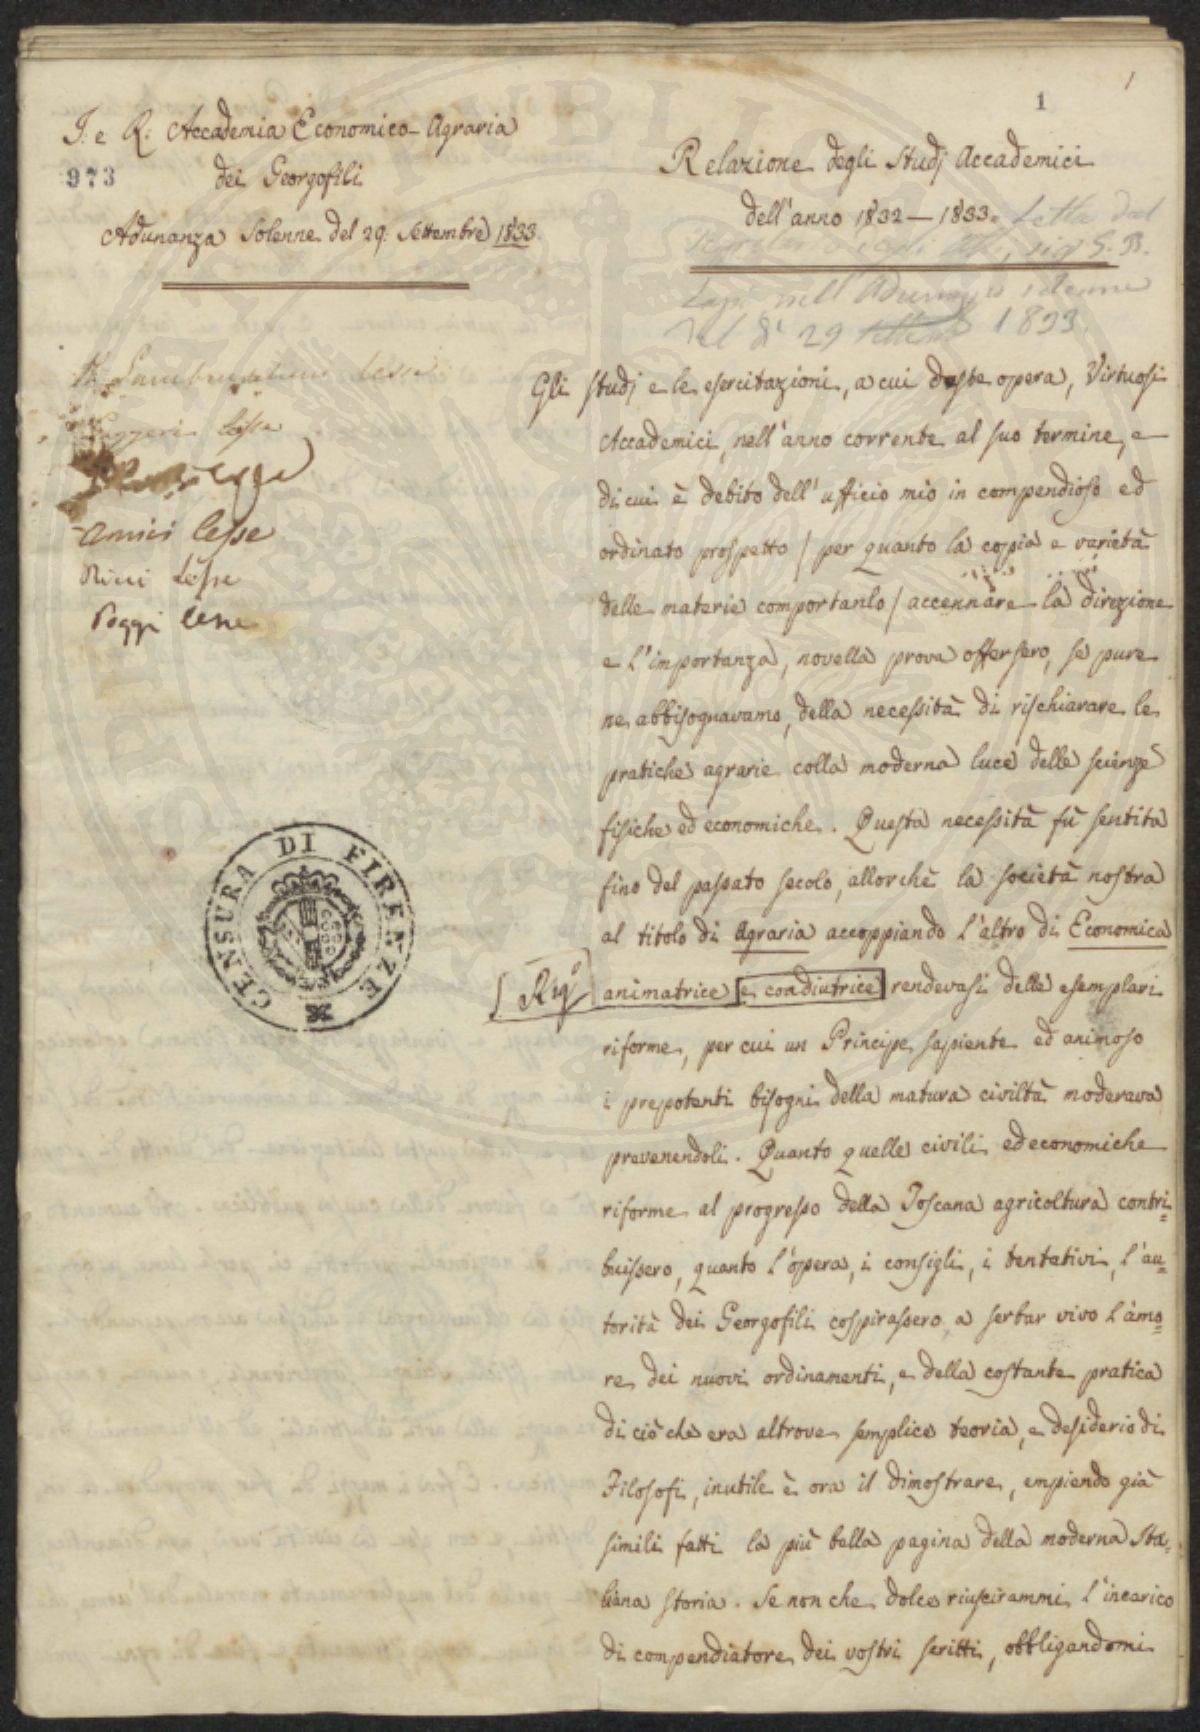 1
1
I. e R. Accademia Economico-Agraria
973
dei Georgofili
Adunanza Solenne del 29. Settembre 1833.
Relazione degli Studj Accademici
dell'anno 1832 — 1833. Letta dal
Segretario degli Atti, sig. G. B.
nell'Adunanza solenne
del dì 29 settemb 1833.
Lambruschini lesse
lesse
lesse
Amici lesse
Ricci Lesse
Poggi lesse
Gli studj e le esercitazioni, a cui deste opera, Virtuosi
Accademici, nell'anno corrente al suo termine, e
di cui è debito dell'ufficio mio in compendioso ed
ordinato prospetto / per quanto la copia e varietà
delle materie comportanlo / accennare la direzione
e l'importanza, novella prova offersero, se pure
ne abbisognavamo, della necessità di rischiarare le
pratiche agrarie colla moderna luce delle scienze
fisiche ed economiche. Questa necessità fù sentita
fino del passato secolo, allorchè la società nostra
al titolo di Agraria accoppiando l'altro di Economica
animatrice e coadiutrice rendevasi delle esemplari
riforme, per cui un Principe sapiente ed animoso
i prepotenti bisogni della matura civiltà moderava
prevenendoli. Quanto quelle civili ed economiche
riforme al progresso della Toscana agricoltura contri=
buissero, quanto l'opera, i consigli, i tentativi, l'au=
torità dei Georgofili cospirassero a serbar vivo l'amo=
re dei nuovi ordinamenti, e della costante pratica
di ciò che era altrove semplice teoria, e desiderio di
Filosofi, inutile è ora il dimostrare, empiendo già
simili fatti la più bella pagina della moderna Ita=
liana storia. Se non che dolce riuscirammi l'incarico
di compendiatore dei vostri scritti, obbligandomi
CENSURA DI FIRENZE